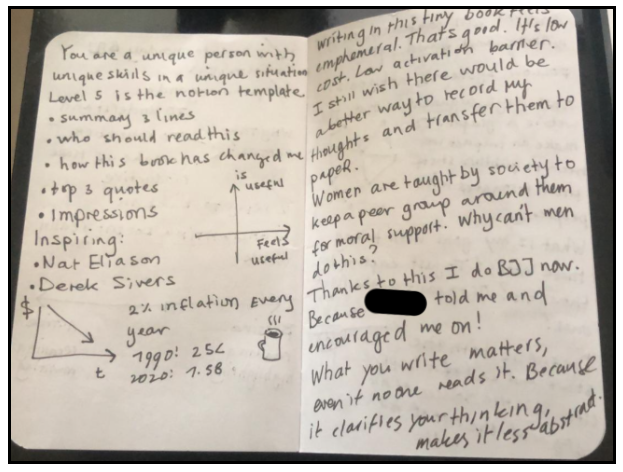 You are a unique person with
unique skills in a unique situation
Level 5 is the notion template
• summary 3 lines
• who should read this
• how this book has changed me
• top 3 quotes
• Impressions
is
useful
Feels
useful
Inspiring:
• Nat Eliason
• Derek Sivers
$
t
2% inflation Every
year
1990: 25¢
2020: 1.58
writing in this tiny book feels
emphemeral. That's good. It's low
cost. Low activation barrier.
I still wish there would be
a better way to record my
thoughts and transfer them to
paper.
Women are taught by society to
keep a peer group around them
for moral support. Why can't men
do this?
Thanks to this I do BJJ now.
Because told me and
encouraged me on!
What you write matters,
even if no one reads it. Because
it clarifies your thinking,
makes it less abstract.